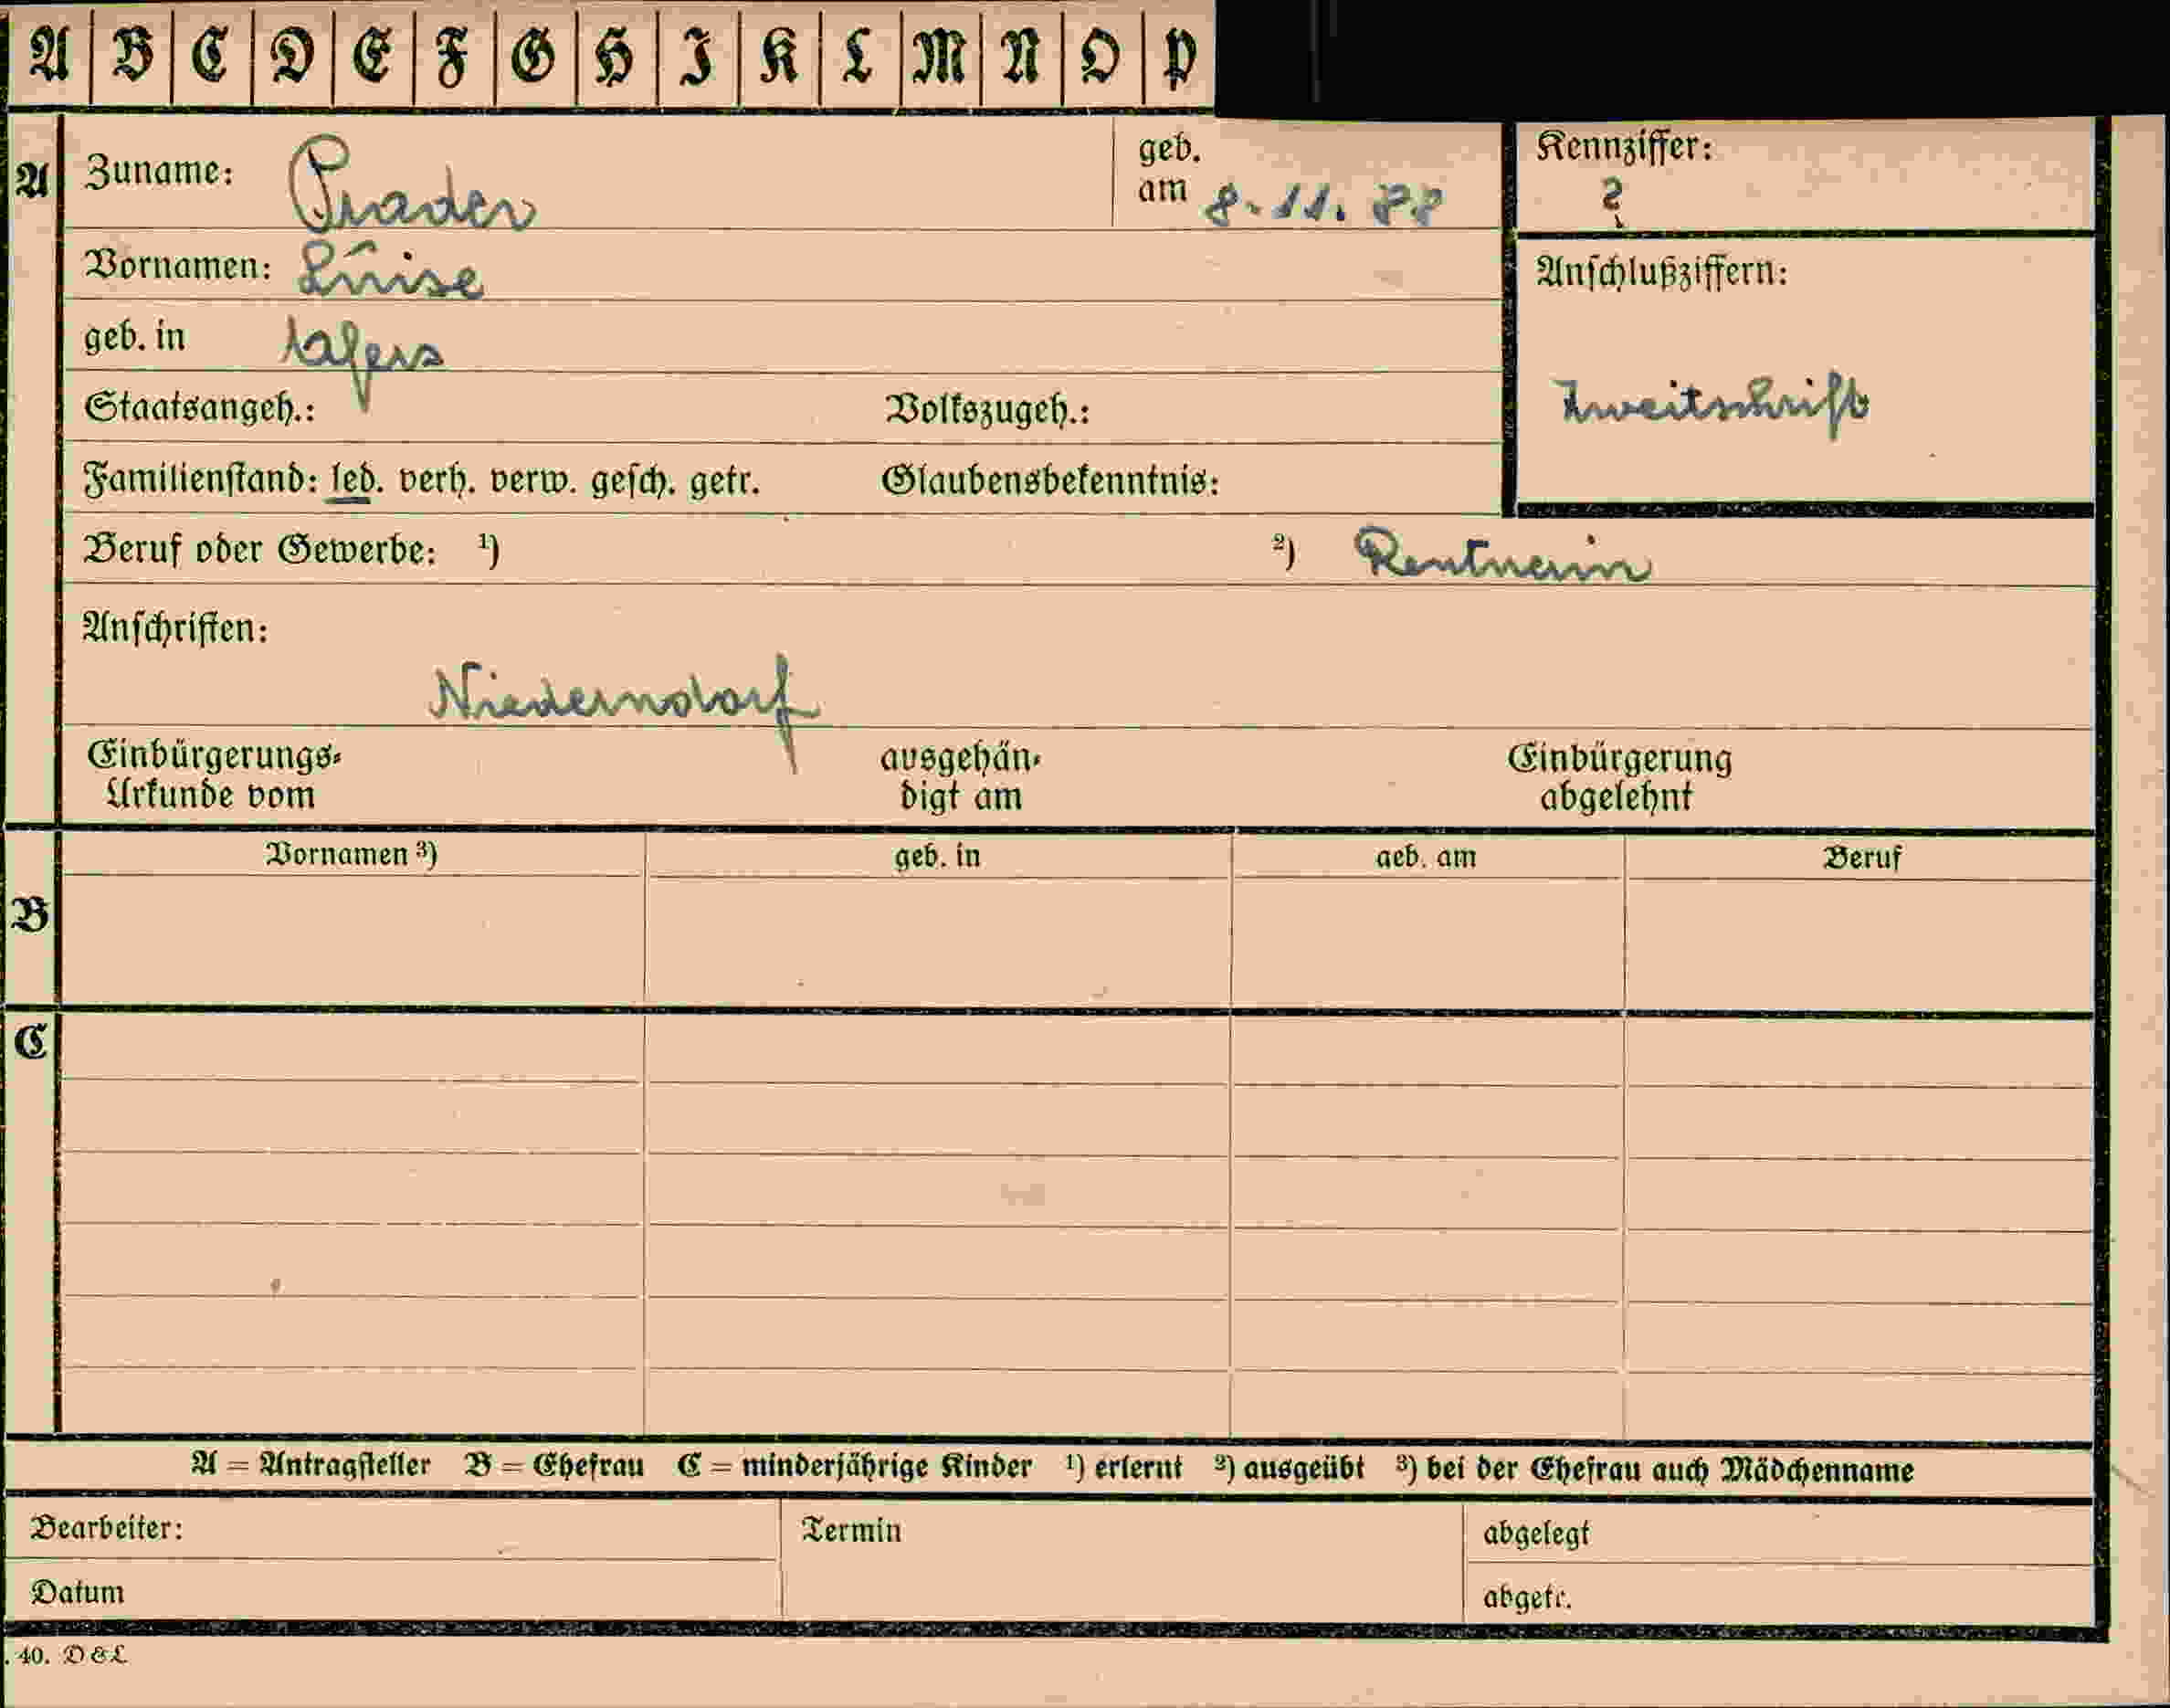 A B C D E F G H I K L M N O P
A Zuname: Prader geb. am 8.11.88 Kennziffer: ?
Vornamen: Luise Anschlußziffern:
geb. in
Staatsangeh.: Volkszugeh.: Zweitschrift
Familienstand: led. verh. verw. gesch. getr. Glaubensbekenntnis:
Beruf oder Gewerbe: ¹) ²) Rentnerin
Anschriften:
Niederndorf
Einbürgerungs- ausgehän- Einbürgerung
Urkunde vom digt am abgelehnt
Vornamen ³) geb. in geb. am Beruf
B
C
A = Antragsteller B = Ehefrau C = minderjährige Kinder ¹) erlernt ²) ausgeübt ³) bei der Ehefrau auch Mädchenname
Bearbeiter: Termin abgelegt
Datum abgetr.
. 40. D & L